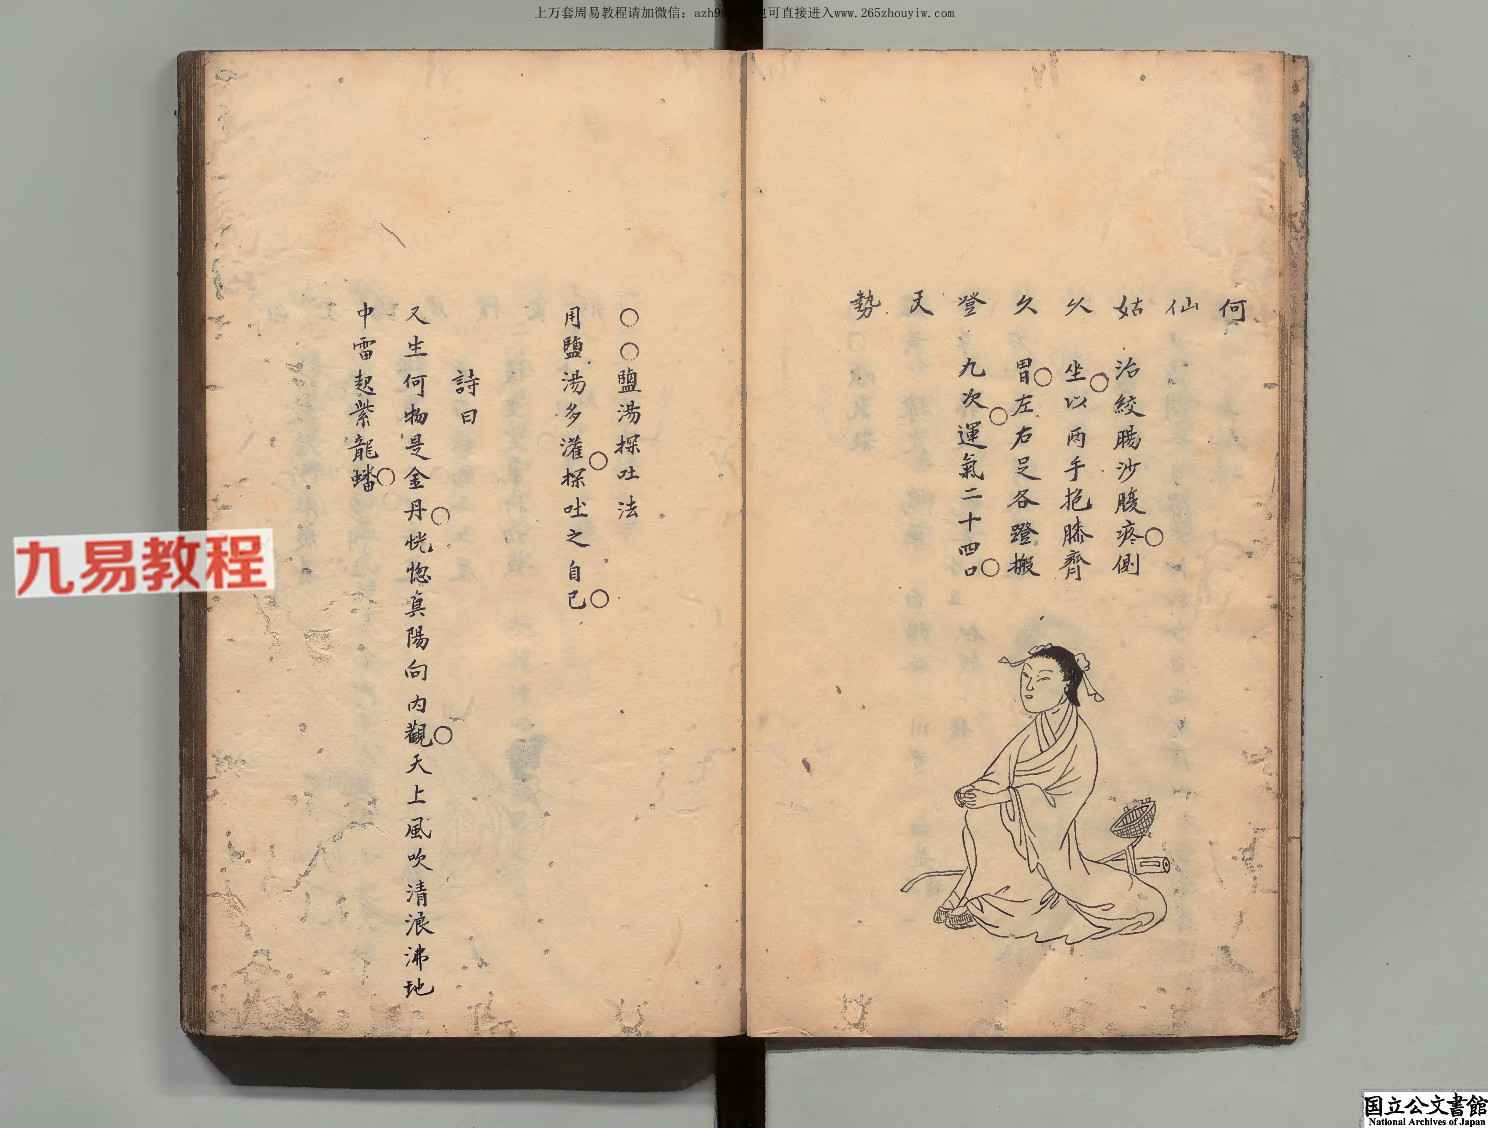 上万套周易教程请加微信：azh9 也可直接进入www.265zhouyiw.com
何仙姑久久登天勢
治絞腸沙腹疼側
坐以兩手抱膝齊
胃左右足各蹬搬
九次運氣二十四口
○○鹽湯探吐法
用鹽湯多灌探吐之自已
詩曰
又生何物是金丹恍惚真陽向內觀天上風吹清浪沸地
中雷起紫龍蟠
九易教程
国立公文書館
National Archives of Japan